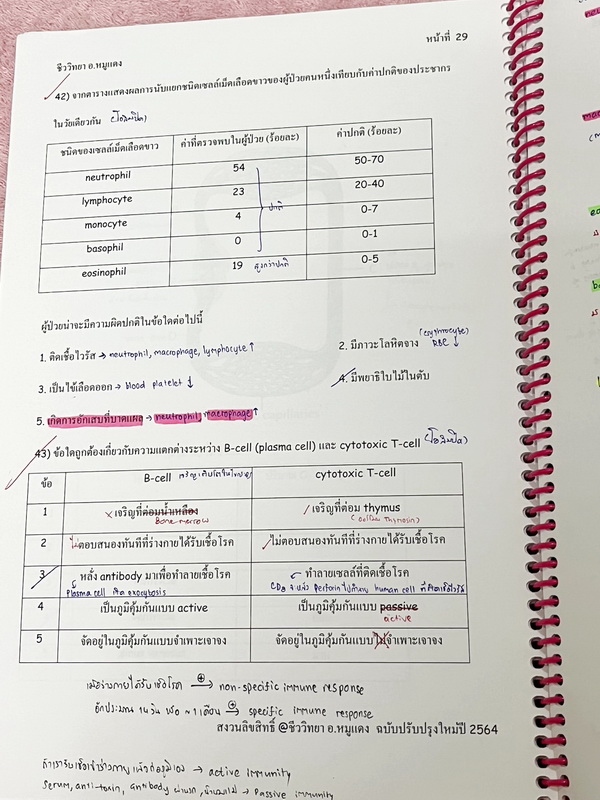 หน้าที่ 29
ชีววิทยา อ.หมูแดง
42) จากตารางแสดงผลการนับแยกชนิดเซลล์เม็ดเลือดขาวของผู้ป่วยคนหนึ่งเทียบกับค่าปกติของประชากร
ในวันเดียวกัน (โอลิมปิก)
ชนิดของเซลล์เม็ดเลือดขาว ค่าที่ตรวจพบในผู้ป่วย (ร้อยละ) ค่าปกติ (ร้อยละ)
neutrophil 54 50-70
lymphocyte 23 20-40
monocyte 4 0-7
ปกติ
basophil 0 0-1
eosinophil 19 สูงกว่าปกติ 0-5
ผู้ป่วยน่าจะมีความผิดปกติในข้อใดต่อไปนี้
(erythrocyte)
1. ติดเชื้อไวรัส → neutrophil, macrophage, lymphocyte ↑ 2. มีภาวะโลหิตจาง RBC ↓
3. เป็นไข้เลือดออก → blood platelet ↓ 4. มีพยาธิใบไม้ในตับ
5. เกิดการอักเสบที่บาดแผล → neutrophil, macrophage ↑
43) ข้อใดถูกต้องเกี่ยวกับความแตกต่างระหว่าง B-cell (plasma cell) และ cytotoxic T-cell (โอลิมปิก)
ข้อ B-cell cytotoxic T-cell
1 เจริญที่ต่อมน้ำเหลือง เจริญที่ต่อม thymus
Bone marrow Thymosin)
2 ไม่ตอบสนองทันทีที่ร่างกายได้รับเชื้อโรค ไม่ตอบสนองทันทีที่ร่างกายได้รับเชื้อโรค
3 หลั่ง antibody มาเพื่อทำลายเชื้อโรค ทำลายเซลล์ที่ติดเชื้อโรค
Plasma cell เกิด exocytosis CD8 หลั่ง Perforin ไปทำลาย human cell ที่ติดเชื้อไวรัส
4 เป็นภูมิคุ้มกันแบบ active เป็นภูมิคุ้มกันแบบ passive
active
5 จัดอยู่ในภูมิคุ้มกันแบบจำเพาะเจาะจง จัดอยู่ในภูมิคุ้มกันแบบไม่จำเพาะเจาะจง
เมื่อร่างกายได้รับเชื้อโรค ⊕→ non-specific immune response
อีกประมาณ 14 วัน หรือ ~1 เดือน ⊕→ specific immune response
สงวนลิขสิทธิ์ @ชีววิทยา อ.หมูแดง ฉบับปรับปรุงใหม่ปี 2564
→ active immunity
Serum, anti-toxin, antibody → Passive immunity